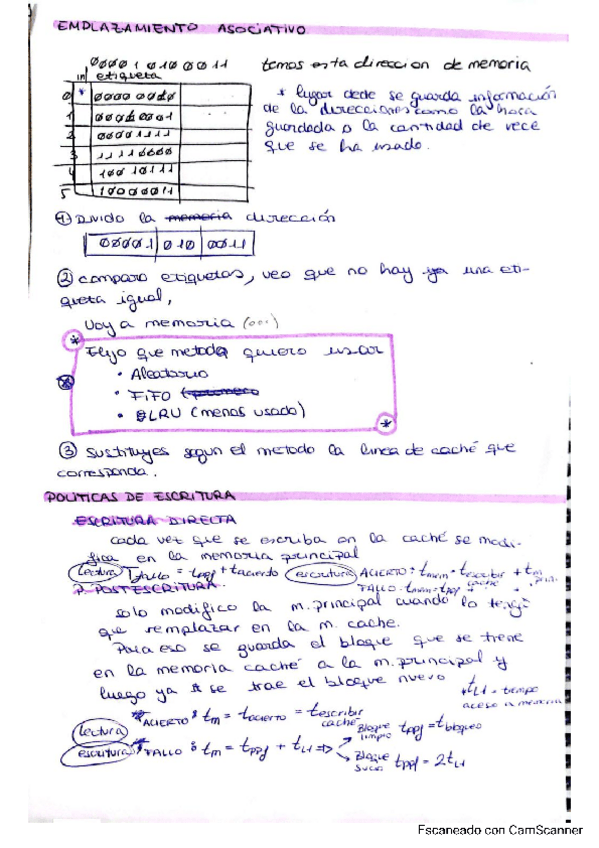 EMPLAZAMIENTO ASOCIATIVO
0000 1 010 00 11 temos esta direccion de memoria
in etiqueta
0 *
* lugar dede se guarda información
de la direcciones como la hora
guardada o la cantidad de vece
que se ha usado.
1
2 00001111
3 11110000
4 100 10111
5 10000011
① Divido la memoria dirección
00001 010 0011
② comparo etiquetas, veo que no hay ya una eti-
queta igual,
Voy a memoria (...)
* Elijo que metodo quiero usar
• Aleatorio
• FiFO (primero
• LRU (menos usado) *
③ Sustituyes segun el metodo la linea de caché que
corresponda.
POLITICAS DE ESCRITURA
ESCRITURA DIRECTA
cada vez que se escriba en la caché se modi-
fica en la memoria principal
Lectura TFALLO = tppf + tacierto escritura ACIERTO: tmem = tescribir caché + tm prin.
FALLO: tmem = tppf +
P. POSTESCRITURA.
solo modifico la m. principal cuando lo tengo
que remplazar en la m. cache.
Para eso se guarda el bloque que se tiene
en la memoria caché a la m. principal y
luego ya se trae el bloque nuevo
* tLi = tiempo
acceso a memoria
Lectura * ACIERTO: tm = tacierto = tescribir caché
escritura * FALLO: tm = tppf + tLi => Bloque limpio tppf = tbloqueo
Bloque sucio tppf = 2tLi
Escaneado con CamScanner